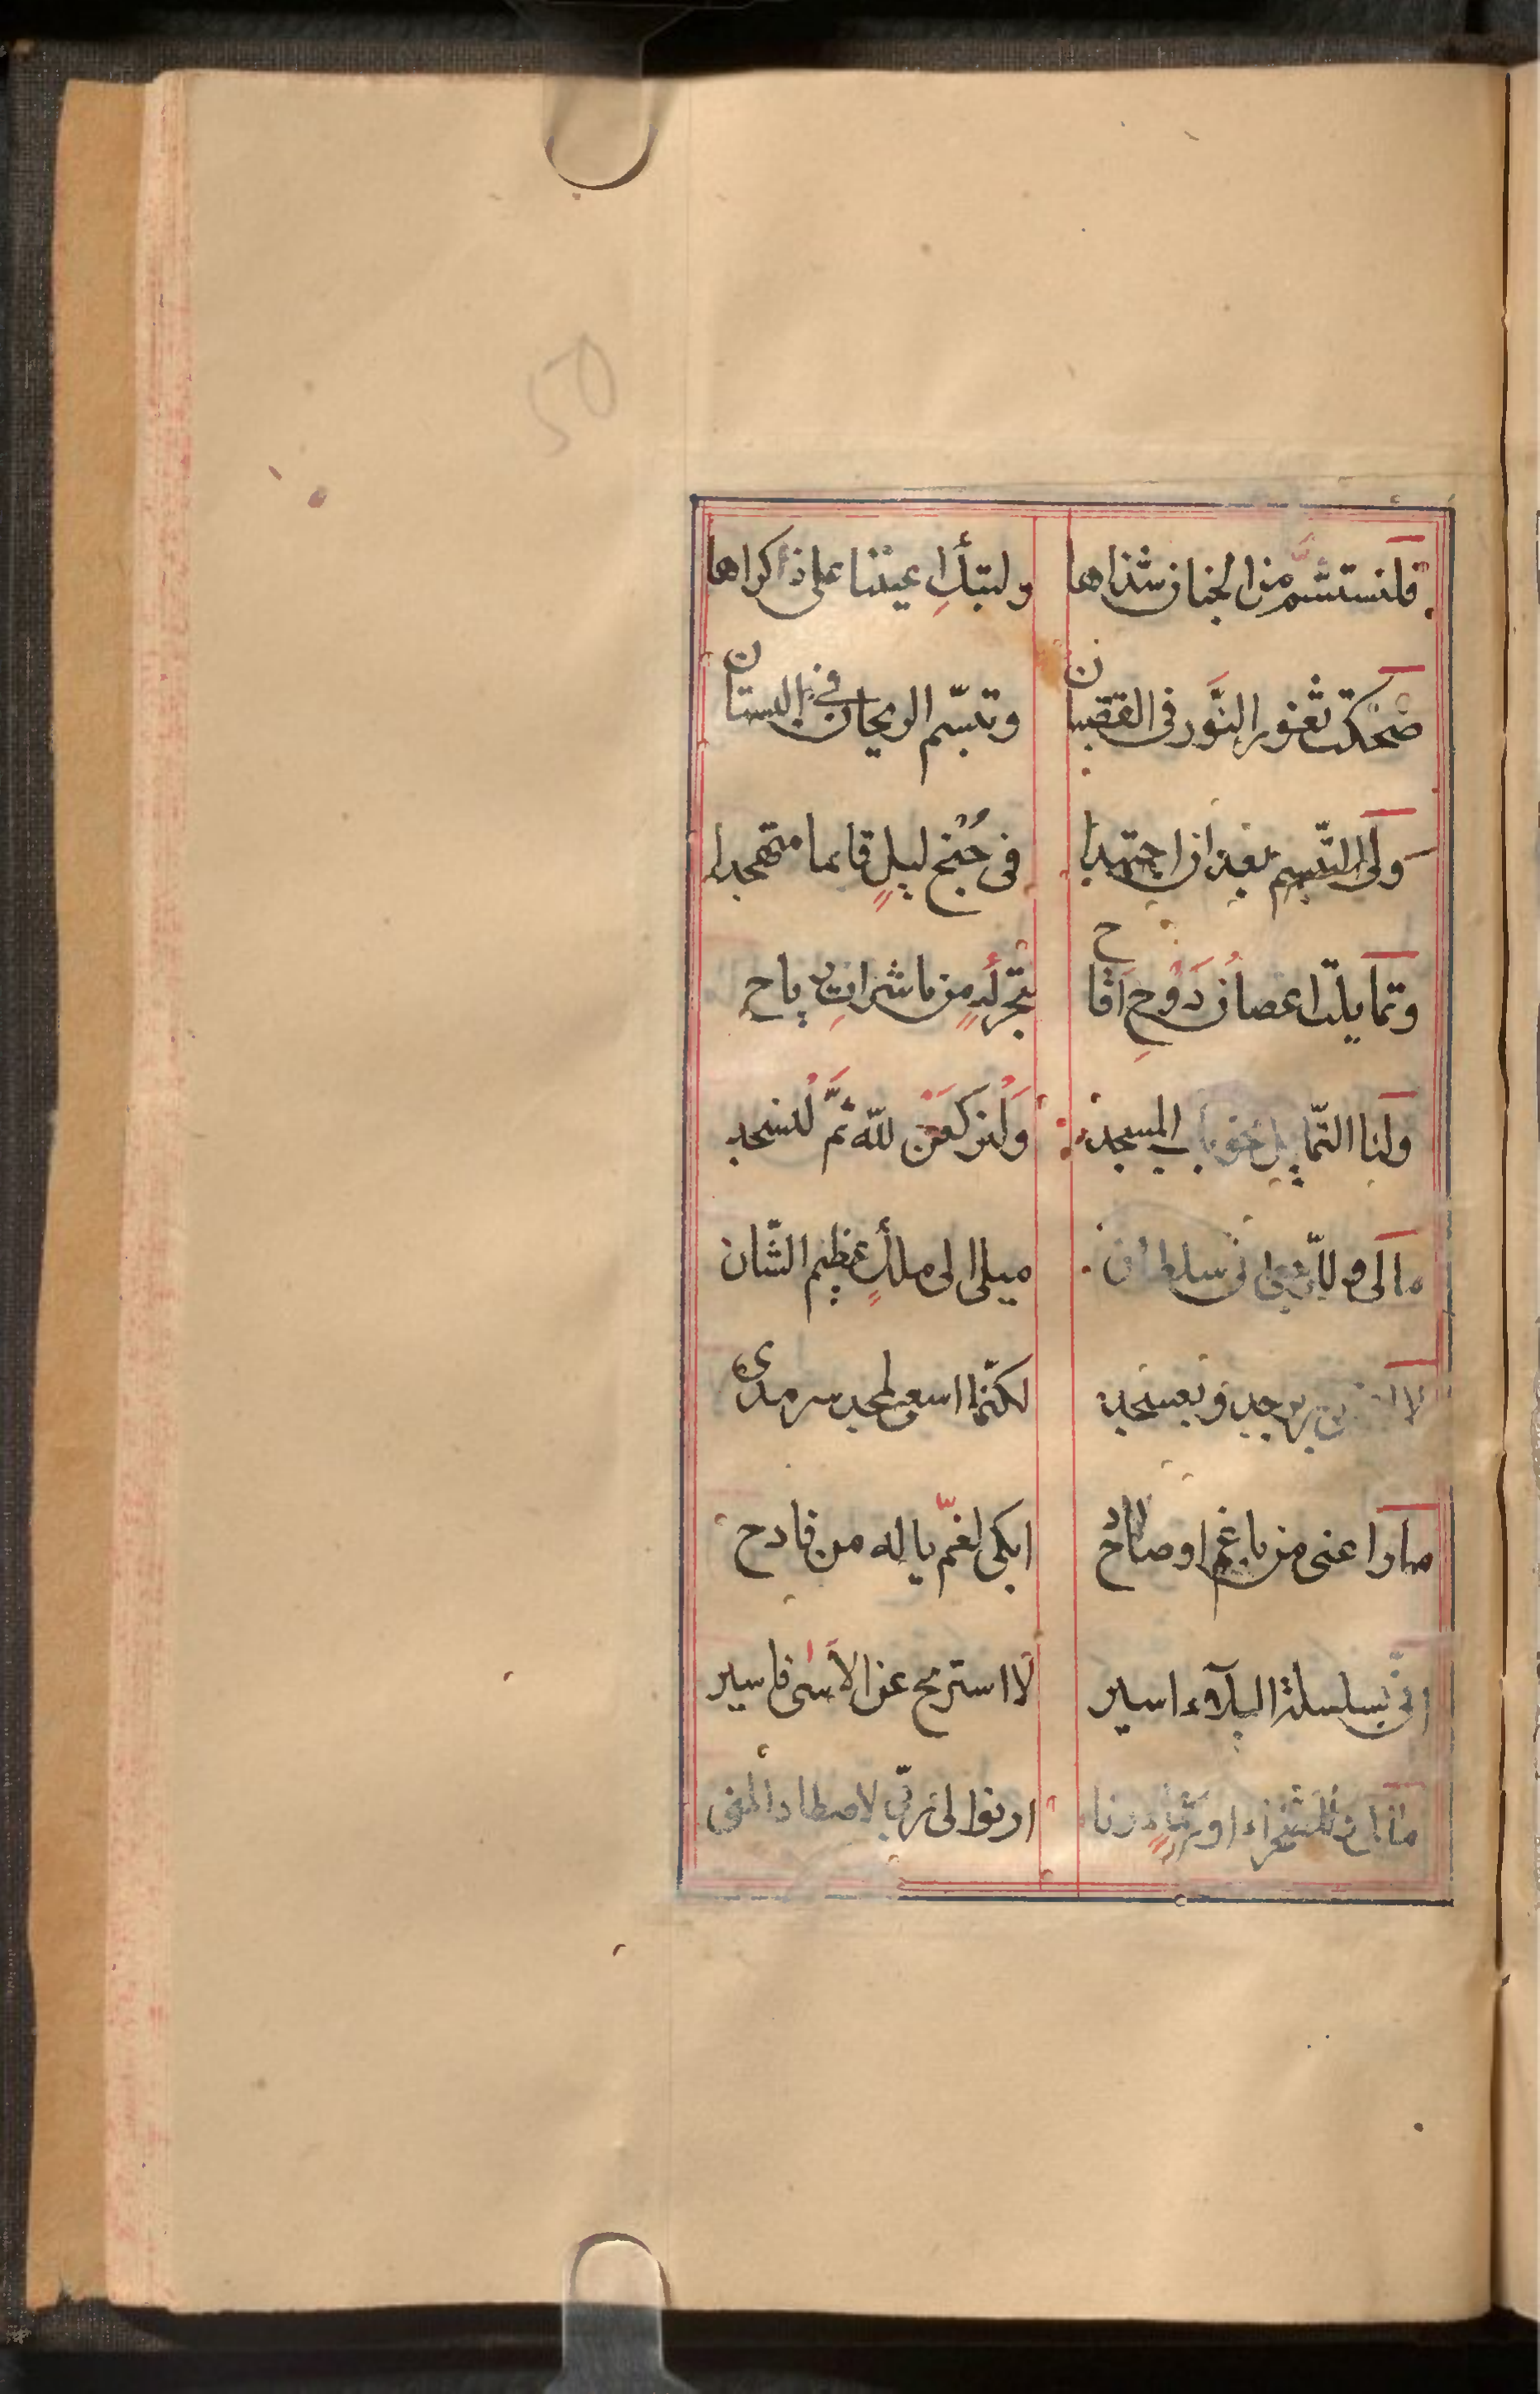 50
فلنستشمَّ من الجنان شذاها ولتبكِ اعيننا على ذكراها
ضحكت ثغور النَّور فى القضبان وتبسّم الريحان فى البستان
ولى التبسم بعد ان اجتهدا فى جُنْح ليلٍ قائما متهجدا
وتمايلت اغصانُ دَوْحِ اَقاح من باشراتِ رياح
ولنا التمايل المسجد وَلْنركعَنْ للّه ثمَّ لْنسجد
مالى سلطان ميلى الى ملكٍ عظيم الشّان
لا بزبرجد وبعسجد لكنّما اسعى لمجد سرمدى
ما راعنى من باغم او صادح ابكى لغمّ ياله من فادح
انّى بسلسلة البلآء اسير لا استريح عن الاسى فاسير
ارنوا لى ربّى لاصطاد المنى